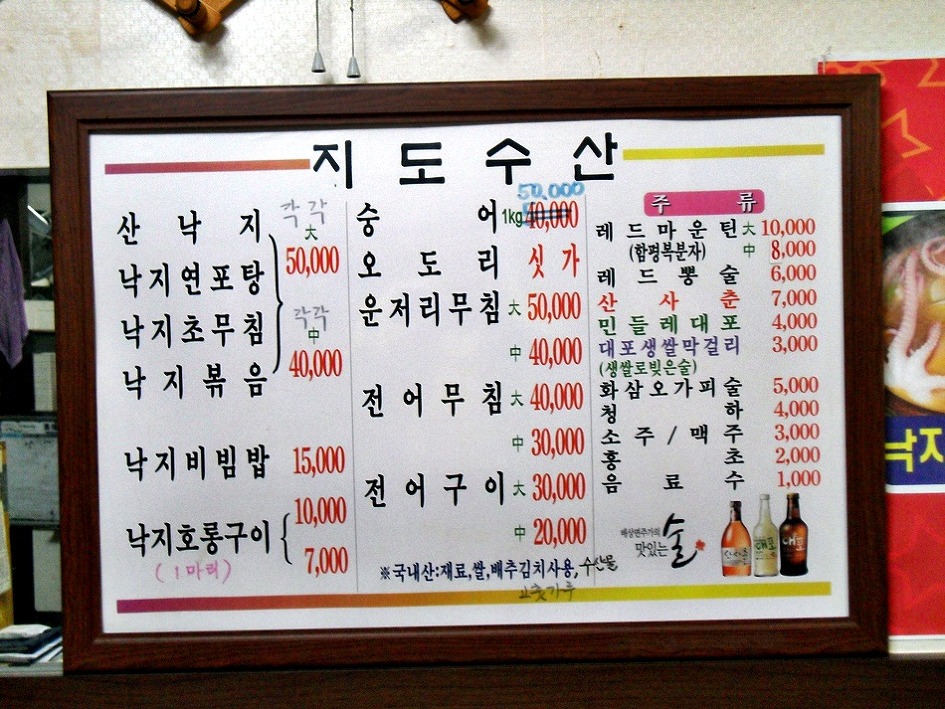 지도수산
산낙지 각각 大 50,000
낙지연포탕
낙지초무침 각각 中 40,000
낙지볶음
낙지비빔밥 15,000
낙지호롱구이 10,000
(1마리) 7,000
숭어 1kg 40,000 50,000
오도리 싯가
운저리무침 大 50,000
中 40,000
전어무침 大 40,000
中 30,000
전어구이 大 30,000
中 20,000
※국내산:재료,쌀,배추김치사용, 수산물
고춧가루
주류
레드마운틴 大 10,000
(함평복분자) 中 8,000
레드뽕술 6,000
산사춘 7,000
민들레대포 4,000
대포생쌀막걸리 3,000
(생쌀로빚은술)
화삼오가피술 5,000
청하 4,000
소주/맥주 3,000
홍초 2,000
음료수 1,000
배상면주가의
맛있는 술
산사춘
대포
낙지